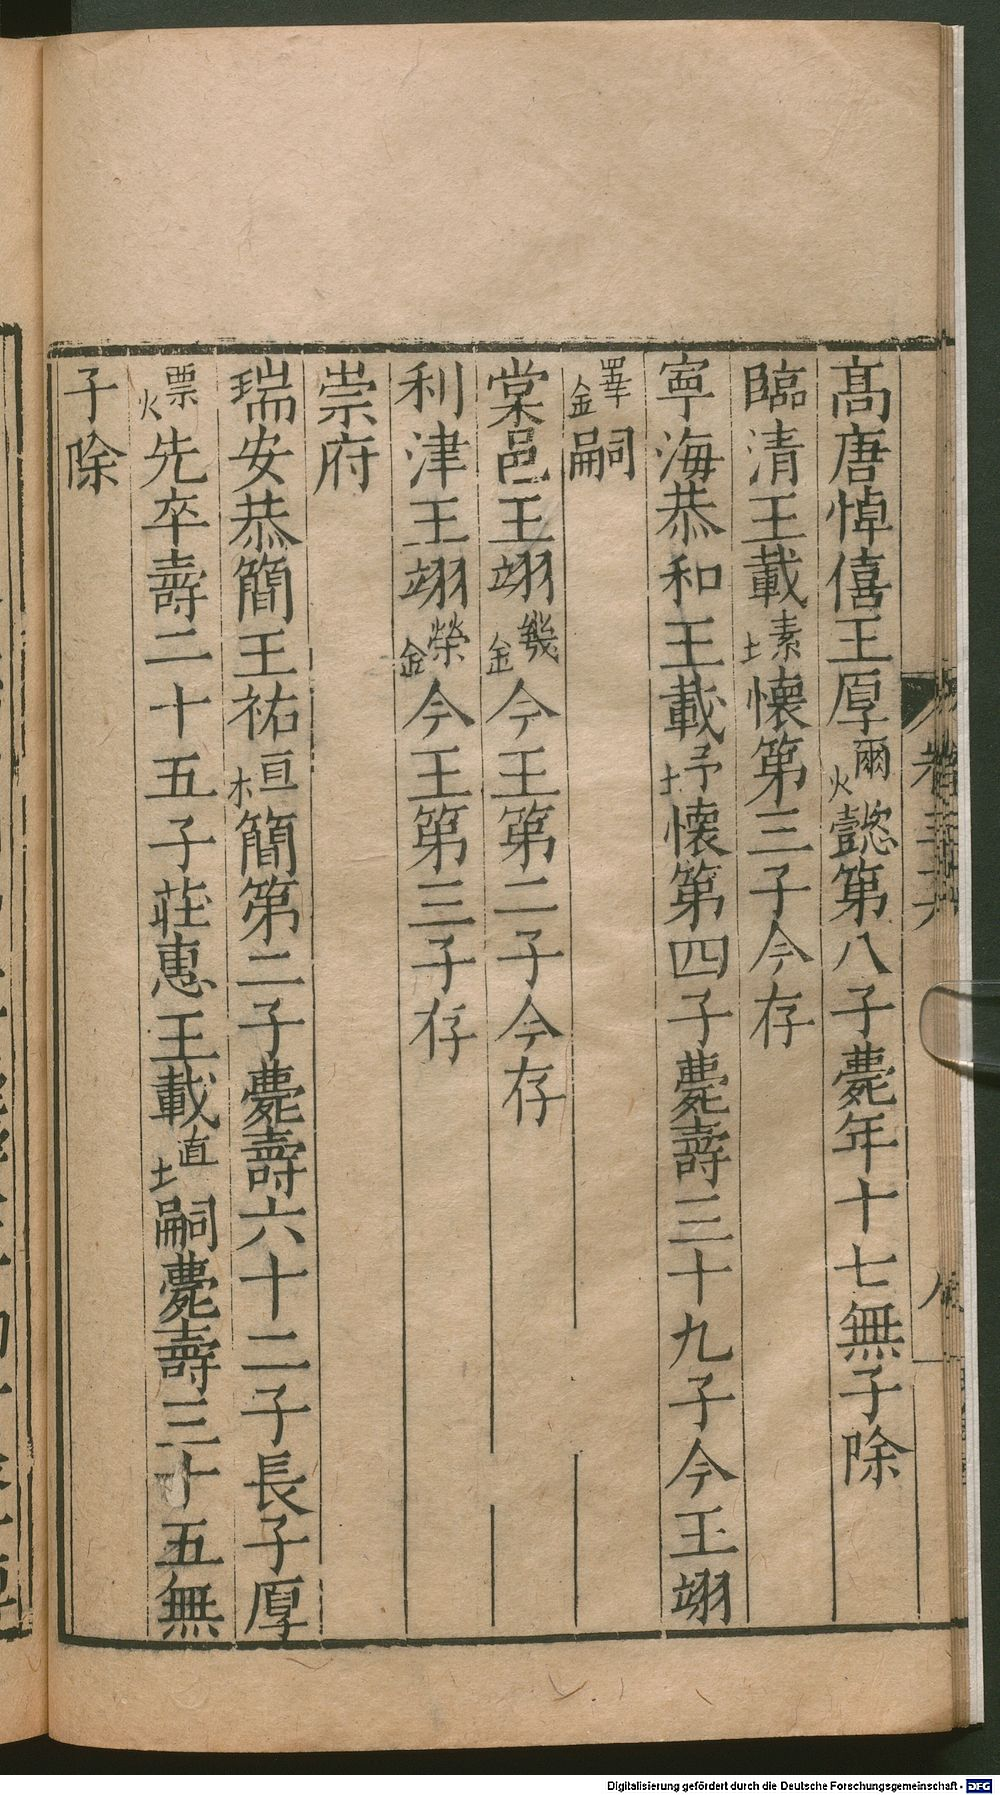 髙唐悼僖王厚爾火懿第八子薨年十七無子除
臨清王載素土懷第三子今存
寧海恭和王載予土懷第四子薨壽三十九子今王翊
睪金嗣
棠邑王翊幾金今王第二子今存
利津王翊榮金今王第三子存
崇府
瑞安恭簡王祐亘木簡第二子薨壽六十二子長子厚
票火先卒壽二十五子莊惠王載直土嗣薨壽三十五無
子除
Digitalisierung gefördert durch die Deutsche Forschungsgemeinschaft - DFG